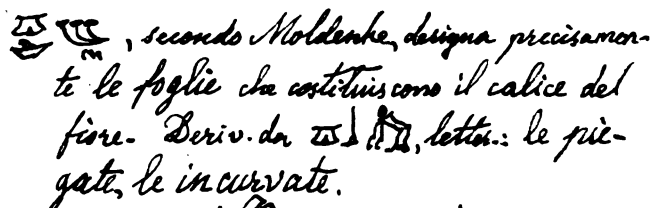 , secondo Moldenke, designa precisamen-
te le foglie che costituiscono il calice del
fiore. Deriv. da , letter.: le pie-
gate, le incurvate.